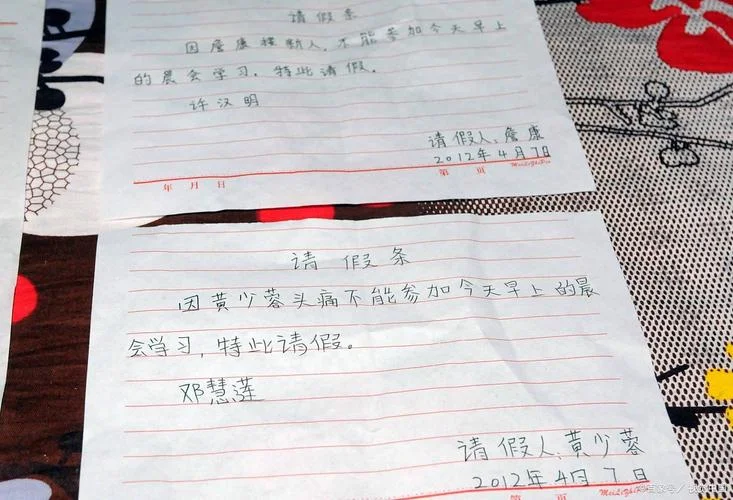 请假条
因詹康接新人,不能参加今天早上
的晨会学习,特此请假。
许汉明
请假人:詹康
2012年4月7日
年 月 日
第 页
请假条
因黄少蓉头痛不能参加今天早上的晨
会学习,特此请假。
邓慧莲
请假人:黄少蓉
2012年4月7日